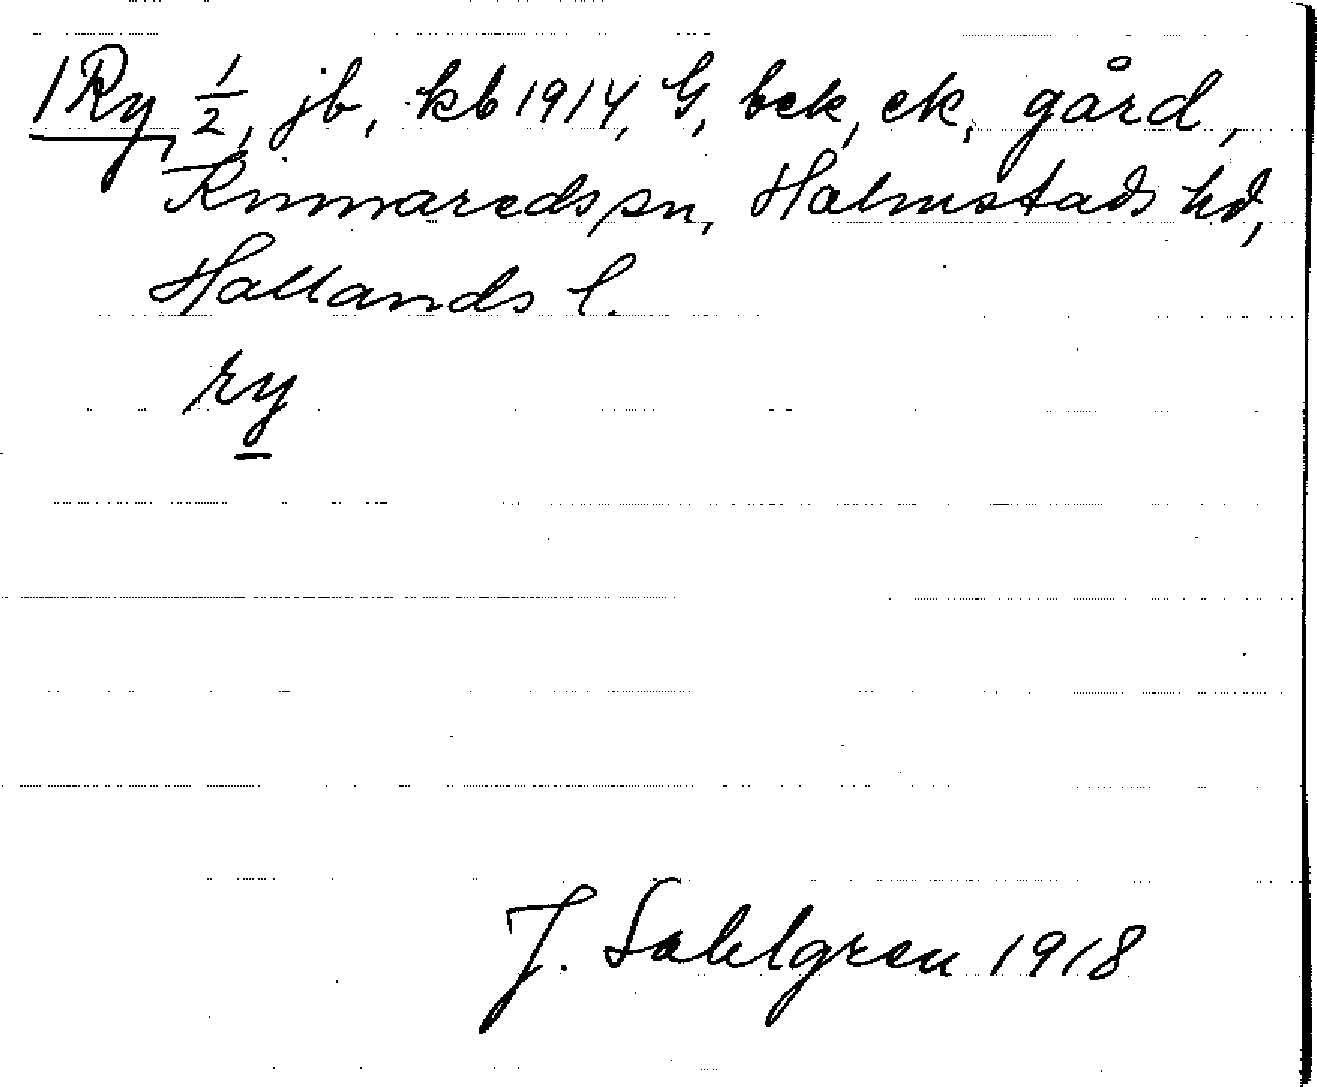 1 Ry, 1/2, jb, kb 1914, G, bek, ek, gård,
Kinnareds sn, Halmstads hd,
Hallands l.
ry
J. Sahlgren 1918